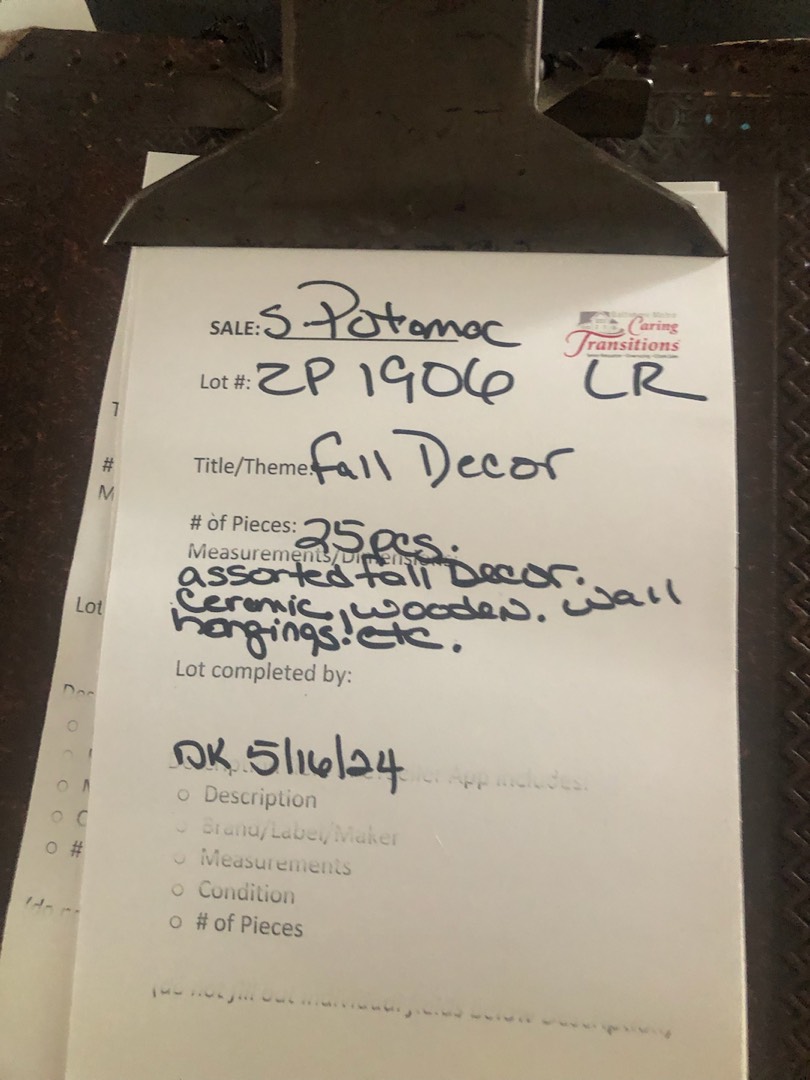 SALE: S. Potomac
Caring
Transitions
Lot #: ZP 1906 LR
Title/Theme: Fall Decor
# of Pieces: 25pcs.
Measurements/Dimensions:
assorted fall Decor.
Ceramic, wooden. wall
hangings! etc.
Lot completed by:
DK 5/16/24
App includes:
○ Description
○ Brand/Label/Maker
○ Measurements
○ Condition
○ # of Pieces
#
M
Lot
○ #